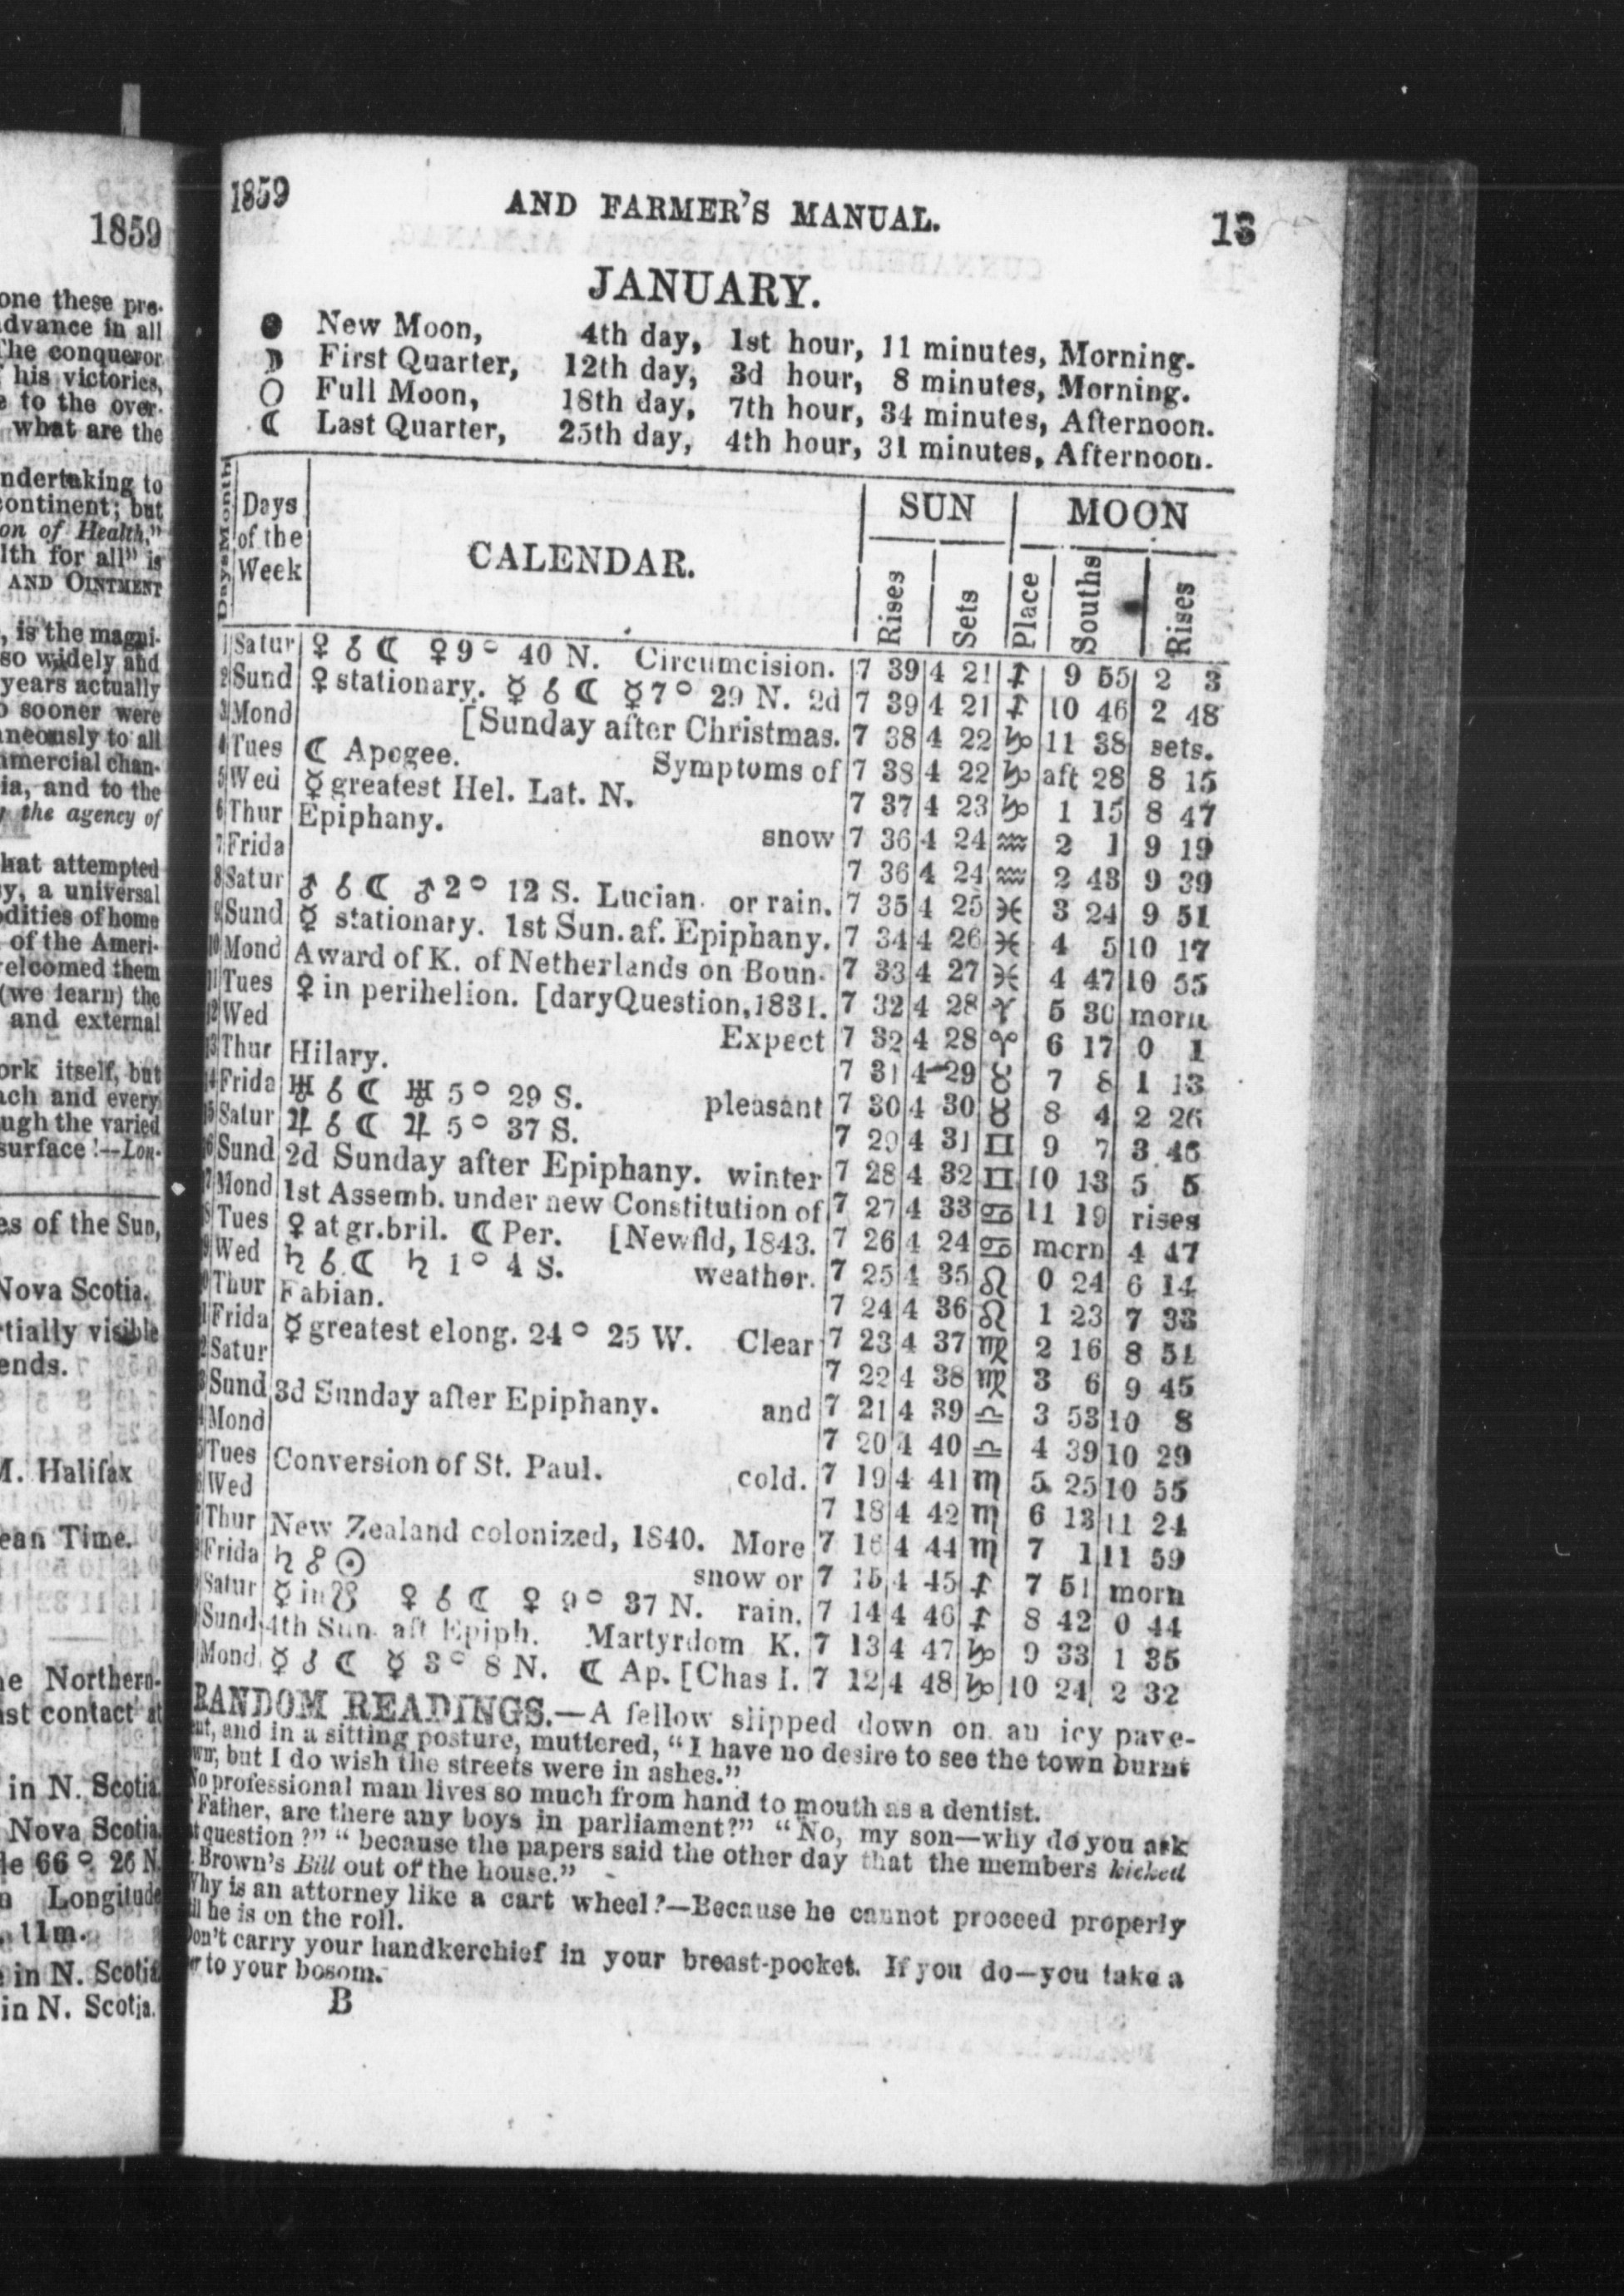 1859
one these pro-
advance in all
The conqueror
his victories,
e to the over-
what are the
ndertaking to
continent; but
on of Health,"
lth for all" is
AND OINTMENT
, is the magni-
so widely and
years actually
o sooner were
aneously to all
mmercial chan-
ia, and to the
y the agency of
hat attempted
y, a universal
odities of home
of the Ameri-
elcomed them
(we learn) the
and external
ork itself, but
ach and every
ugh the varied
surface!—Lon-
es of the Sun,
Nova Scotia.
rtially visible
ends.
M. Halifax
ean Time.
he Northern-
ast contact at
in N. Scotia.
Nova Scotia.
de 66° 26 N.
n Longitude
11m.
e in N. Scotia
in N. Scotia.
1859 AND FARMER'S MANUAL. 13
JANUARY.
● New Moon, 4th day, 1st hour, 11 minutes, Morning.
☽ First Quarter, 12th day, 3d hour, 8 minutes, Morning.
○ Full Moon, 18th day, 7th hour, 34 minutes, Afternoon.
☾ Last Quarter, 25th day, 4th hour, 31 minutes, Afternoon.
Days Month Days of the Week CALENDAR. SUN Rises Sets MOON Place Souths Rises
1 Satur ♀ ☌ ☾ ♀ 9° 40 N. Circumcision. 7 39 4 21 ♐ 9 55 2 3
2 Sund ♀ stationary. ☿ ☌ ☾ ☿ 7° 29 N. 2d 7 39 4 21 ♐ 10 46 2 48
3 Mond [Sunday after Christmas. 7 38 4 22 ♑ 11 38 sets.
4 Tues ☾ Apogee. Symptoms of 7 38 4 22 ♑ aft 28 8 15
5 Wed ☿ greatest Hel. Lat. N. 7 37 4 23 ♑ 1 15 8 47
6 Thur Epiphany. snow 7 36 4 24 ♒ 2 1 9 19
7 Frida 7 36 4 24 ♒ 2 43 9 39
8 Satur ♂ ☌ ☾ ♂ 2° 12 S. Lucian. or rain. 7 35 4 25 ♓ 3 24 9 51
9 Sund ☿ stationary. 1st Sun. af. Epiphany. 7 34 4 26 ♓ 4 5 10 17
10 Mond Award of K. of Netherlands on Boun- 7 33 4 27 ♓ 4 47 10 55
11 Tues ♀ in perihelion. [dary Question, 1831. 7 32 4 28 ♈ 5 30 morn
12 Wed Expect 7 32 4 28 ♈ 6 17 0 1
13 Thur Hilary. 7 31 4 29 ♉ 7 8 1 13
14 Frida ♅ ☌ ☾ ♅ 5° 29 S. pleasant 7 30 4 30 ♉ 8 4 2 26
15 Satur ♃ ☌ ☾ ♃ 5° 37 S. 7 29 4 31 ♊ 9 7 3 46
6 Sund 2d Sunday after Epiphany. winter 7 28 4 32 ♊ 10 13 5 5
7 Mond 1st Assemb. under new Constitution of 7 27 4 33 ♋ 11 19 rises
8 Tues ♀ at gr. bril. ☾ Per. [Newfld, 1843. 7 26 4 24 ♋ morn 4 47
9 Wed ♄ ☌ ☾ ♄ 1° 4 S. weather. 7 25 4 35 ♌ 0 24 6 14
0 Thur Fabian. 7 24 4 36 ♌ 1 23 7 33
1 Frida ☿ greatest elong. 24° 25 W. Clear 7 23 4 37 ♍ 2 16 8 51
2 Satur 7 22 4 38 ♍ 3 6 9 45
3 Sund 3d Sunday after Epiphany. and 7 21 4 39 ♎ 3 53 10 8
4 Mond 7 20 4 40 ♎ 4 39 10 29
5 Tues Conversion of St. Paul. cold. 7 19 4 41 ♏ 5 25 10 55
6 Wed 7 18 4 42 ♏ 6 13 11 24
7 Thur New Zealand colonized, 1840. More 7 16 4 44 ♏ 7 1 11 59
8 Frida ♄ ☍ ☉ snow or 7 15 4 45 ♐ 7 51 morn
Satur ☿ in ☊ ♀ ☌ ☾ ♀ 9° 37 N. rain. 7 14 4 46 ♐ 8 42 0 44
Sund 4th Sun. aft Epiph. Martyrdom K. 7 13 4 47 ♑ 9 33 1 35
Mond ☿ ☌ ☾ ☿ 3° 8 N. ☾ Ap. [Chas I. 7 12 4 48 ♑ 10 24 2 32
RANDOM READINGS.—A fellow slipped down on an icy pave-
ent, and in a sitting posture, muttered, "I have no desire to see the town burnt
own, but I do wish the streets were in ashes."
No professional man lives so much from hand to mouth as a dentist.
"Father, are there any boys in parliament?" "No, my son—why do you ask
at question?" "because the papers said the other day that the members kicked
. Brown's Bill out of the house."
Why is an attorney like a cart wheel?—Because he cannot proceed properly
ill he is on the roll.
Don't carry your handkerchief in your breast-pocket. If you do—you take a
er to your bosom.
B